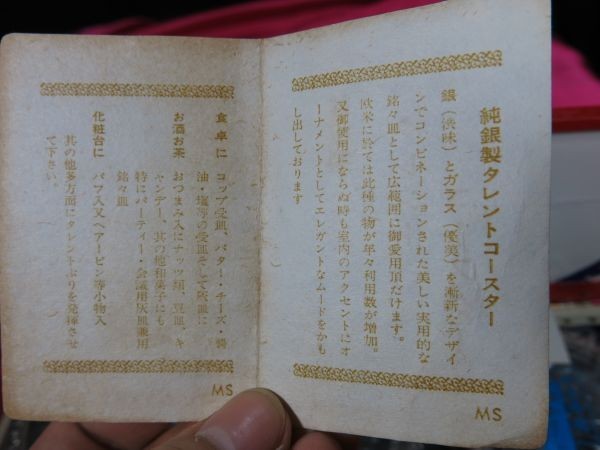 純銀製タレントコースター
銀（渋味）とガラス（優美）を漸新なデザイ
ンでコンビネーションされた美しい実用的な
銘々皿として広範囲に御愛用頂だけます。
欧米に於ては此種の物が年々利用数が増加。
又御使用にならぬ時も室内のアクセントにオ
ーナメントとしてエレガントなムードをかも
し出しております
MS
食卓に　コップ受皿、バター・チーズ・醤
油・塩等の受皿そして灰皿に
お酒お茶　おつまみ入にナッツ皿、豆皿、キ
ャンデー、其の他和菓子にも
特にパーティー・会議用灰皿兼用
銘々皿
化粧台に　パフ入又ヘアーピン等小物入
其の他多方面にタレントぶりを発揮させ
て下さい。
MS